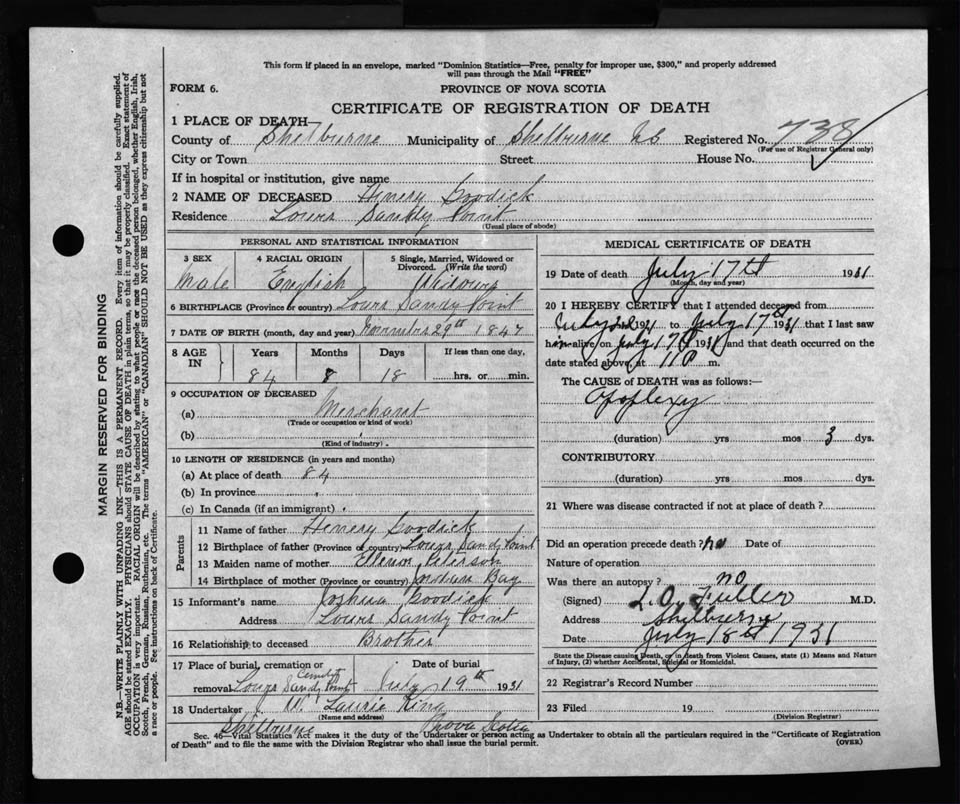 This form if placed in an envelope, marked "Dominion Statistics—Free, penalty for improper use, $300," and properly addressed
will pass through the Mail "FREE"
FORM 6.
PROVINCE OF NOVA SCOTIA
CERTIFICATE OF REGISTRATION OF DEATH
1 PLACE OF DEATH
County of Shelburne Municipality of Shelburne NS Registered No. 738
(For use of Registrar General only)
City or Town Street House No.
If in hospital or institution, give name
2 NAME OF DECEASED Henery Goodick
Residence Lower Sandy Point
(Usual place of abode)
PERSONAL AND STATISTICAL INFORMATION
3 SEX 4 RACIAL ORIGIN 5 Single, Married, Widowed or
Divorced. (Write the word)
Male English Widower
6 BIRTHPLACE (Province or country) Lower Sandy Point
7 DATE OF BIRTH (month, day and year) 29th 1847
8 AGE IN Years Months Days If less than one day,
84 8 18 hrs. or min.
9 OCCUPATION OF DECEASED
(a) Merchant
(Trade or occupation or kind of work)
(b)
(Kind of industry)
10 LENGTH OF RESIDENCE (in years and months)
(a) At place of death 84
(b) In province
(c) In Canada (if an immigrant)
Parents
11 Name of father Henery Goodick
12 Birthplace of father (Province or country) Lower Sandy Point
13 Maiden name of mother Peterson
14 Birthplace of mother (Province or country) Bay
15 Informant's name Joshua Goodick
Address Lower Sandy Point
16 Relationship to deceased Brother
17 Place of burial, cremation or Date of burial
removal Lower Sandy Point Cemetery July 19th 1931
18 Undertaker W. Laurie King
(Name and address)
Shelburne Nova Scotia
MEDICAL CERTIFICATE OF DEATH
19 Date of death July 17th 1931
(Month, day and year)
20 I HEREBY CERTIFY that I attended deceased from
July 1931 to July 17th 1931 that I last saw
him alive on July 17th 1931 and that death occurred on the
date stated above, at 11 P m.
The CAUSE of DEATH was as follows:—
Apoplexy
(duration) yrs mos 3 dys.
CONTRIBUTORY
(duration) yrs mos dys.
21 Where was disease contracted if not at place of death?
Did an operation precede death? no Date of
Nature of operation
Was there an autopsy? no
(Signed) L.O. Fuller M.D.
Address Shelburne
Date July 18th 1931
State the Disease causing Death, or in death from Violent Causes, state (1) Means and Nature
of Injury, (2) whether Accidental, Suicidal or Homicidal.
22 Registrar's Record Number
23 Filed 19
(Division Registrar)
Sec. 46—Vital Statistics Act makes it the duty of the Undertaker or person acting as Undertaker to obtain all the particulars required in the "Certificate of Registration
of Death" and to file the same with the Division Registrar who shall issue the burial permit.
(OVER)
MARGIN RESERVED FOR BINDING
N.B.—WRITE PLAINLY WITH UNFADING INK—THIS IS A PERMANENT RECORD. Every item of information should be carefully supplied.
AGE should be stated EXACTLY. PHYSICIANS should STATE CAUSE OF DEATH in plain terms, so that it may be properly classified. Exact statement of
OCCUPATION is very important. RACIAL ORIGIN will be described by stating to what people or race the deceased person belonged, whether English, Irish,
Scotch, French, German, Russian, Ruthenian, etc. The terms "AMERICAN" or "CANADIAN" SHOULD NOT BE USED as they express citizenship but not
a race or people. See instructions on back of Certificate.